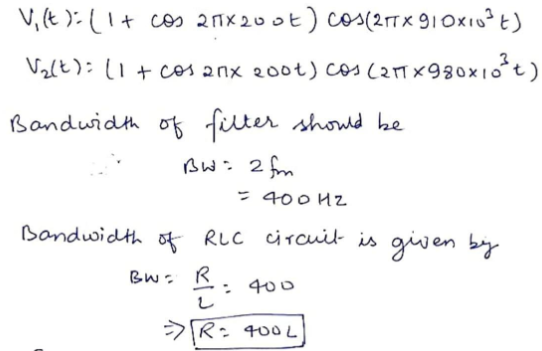 V₁(t) = (1 + cos 2π×200t) cos(2π×910×10³t)
V₂(t) = (1 + cos 2π× 200t) cos (2π×980×10³t)
Bandwidth of filter should be
BW = 2fm
= 400 Hz
Bandwidth of RLC circuit is given by
BW = R/L = 400
⇒ R = 400L